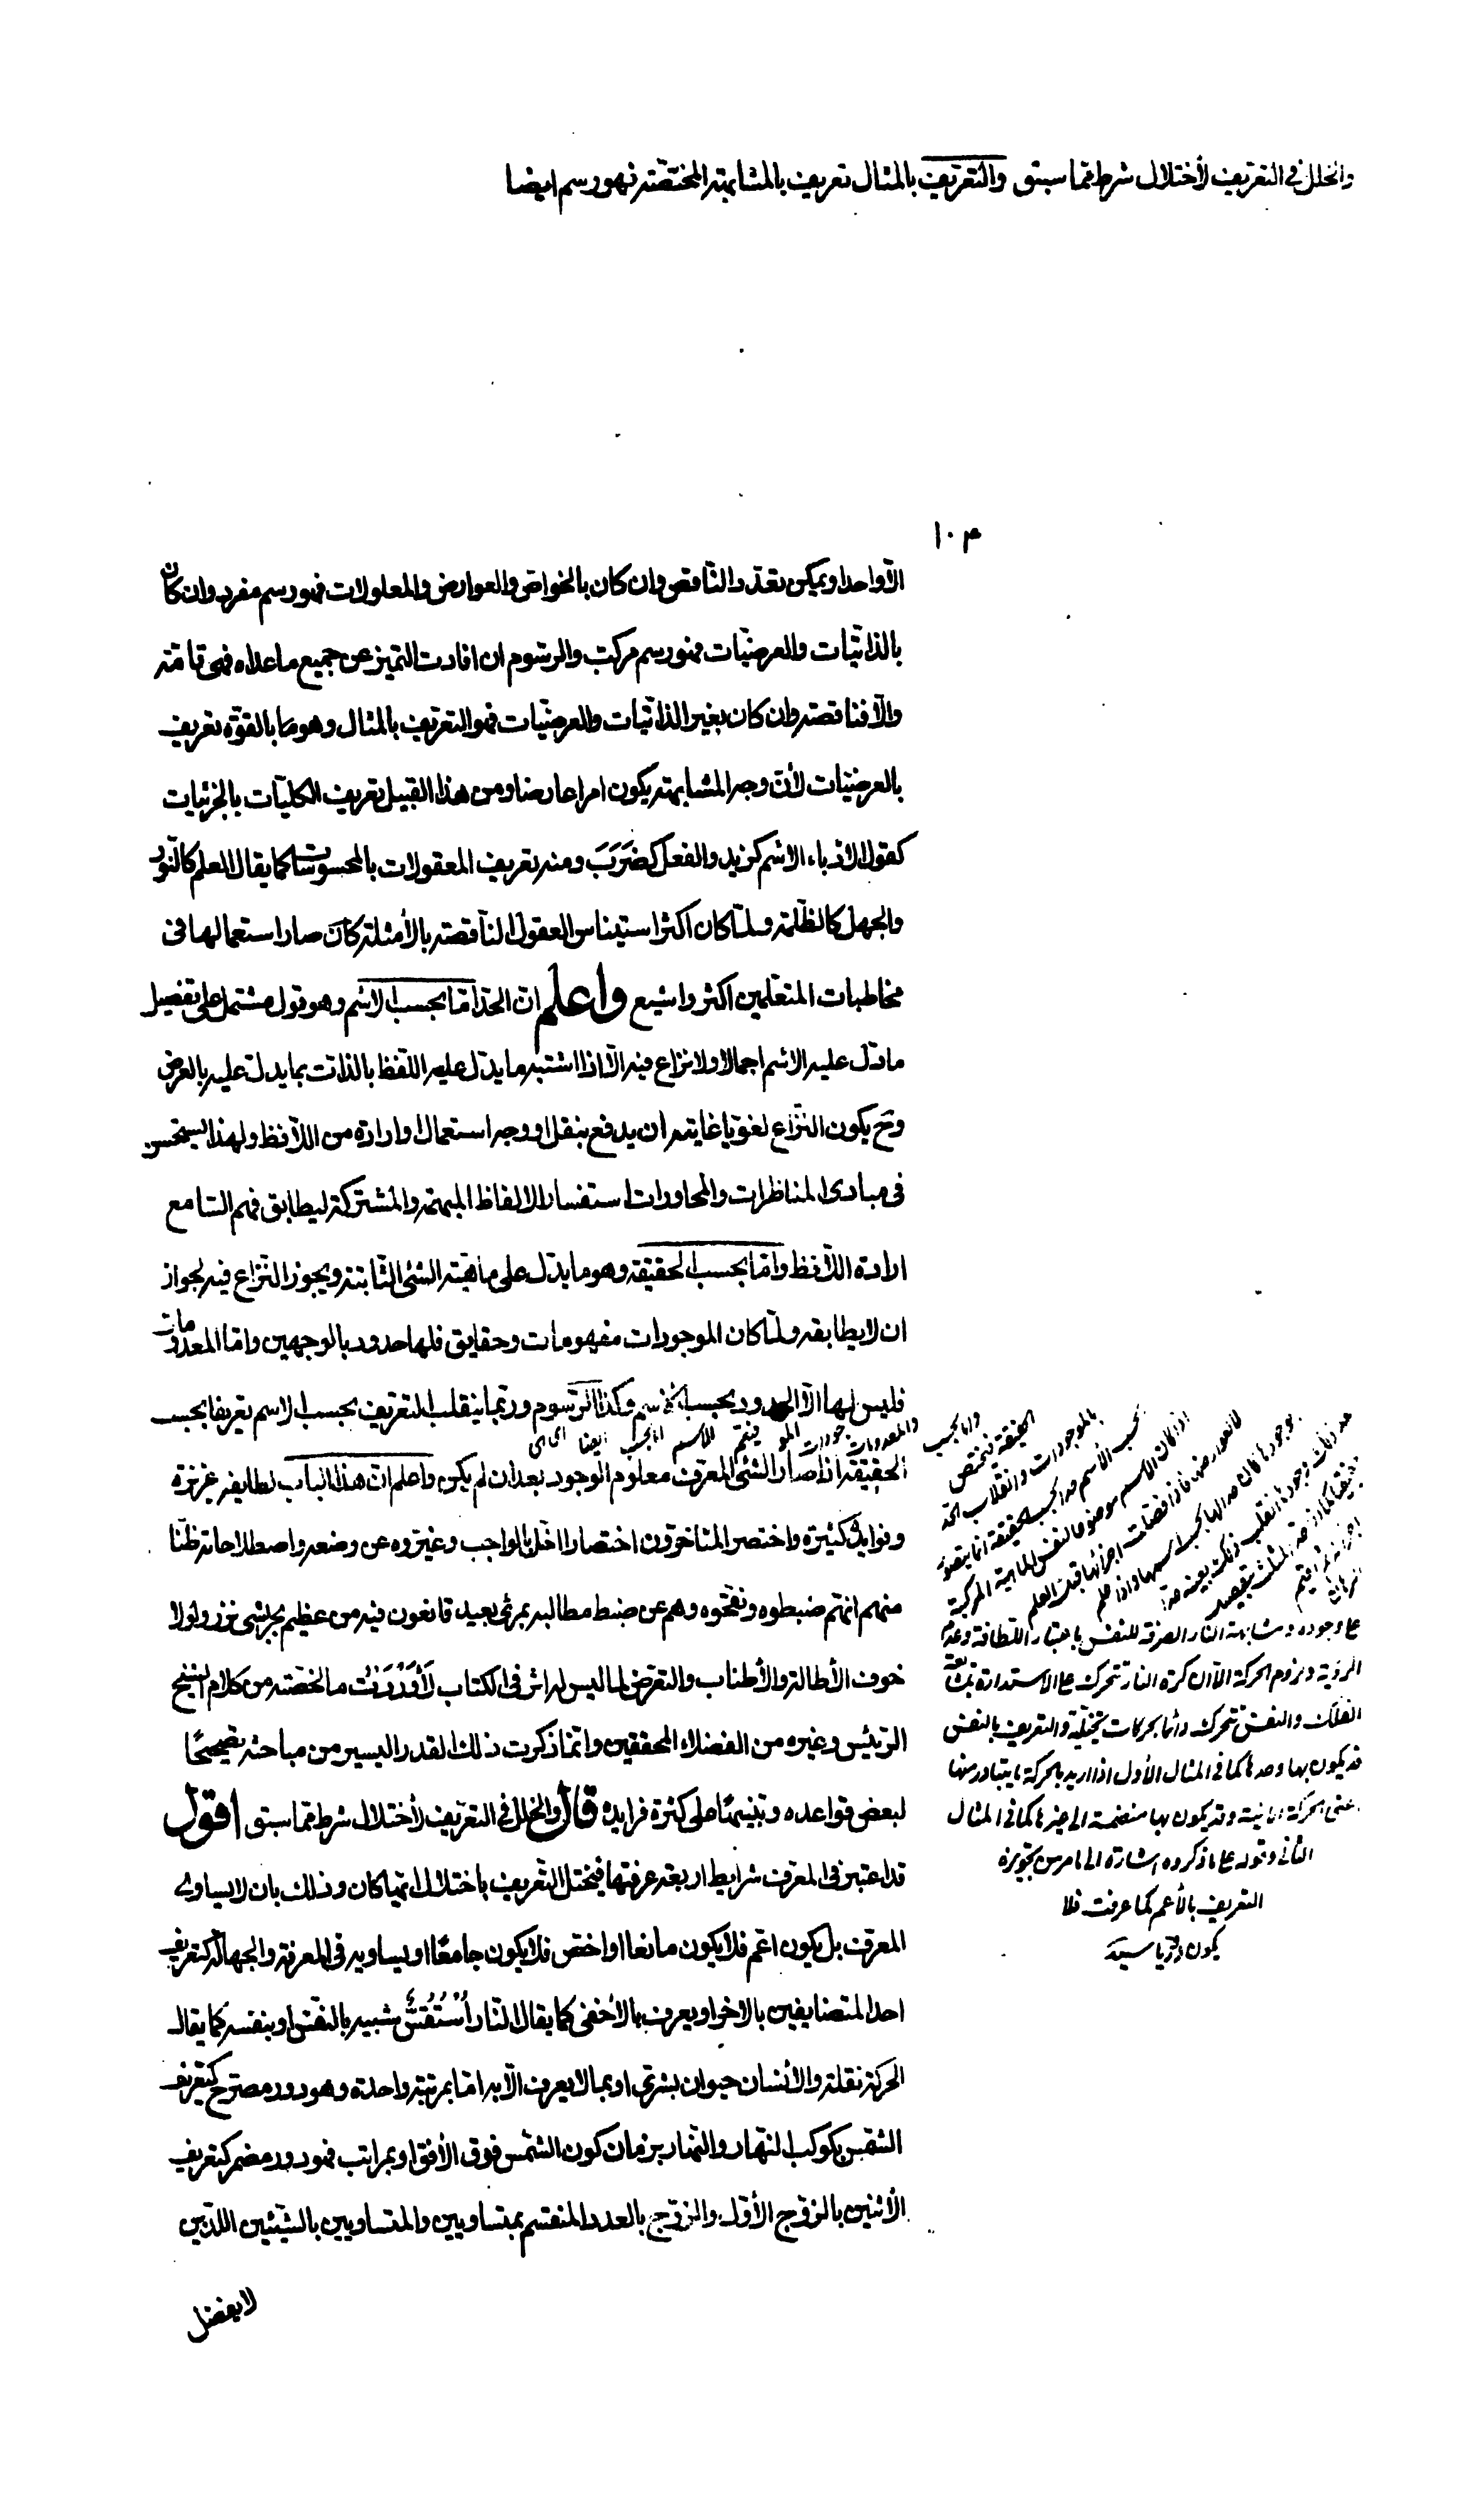 والخلل في التعريف لأختلال شرط مما سبق والتعريف بالمثال تعريف بالمشابهة المختصة فهو رسم ايضا
١٠٣
الّا واحدا ويمكن تعدد الناقص وان كان بالخواص والعوارض والمعلولات فهو رسم مفرد وان كان
بالذاتيات والعرضيات فهو رسم مركب والرسوم ان افادت التميز عن جميع ما عداه فهي تامة
والّا فناقصة وان كان بغير الذاتيات والعرضيات فهو التعريف بالمثال وهو ما بالقوة تعريف
بالعرضيات لأن وجه المشابهة يكون امرا عارضا ومن هذا القبيل تعريف الكليات بالجزئيات
كقول الادباء الاسم كزيد والفعل كضَرَبَ ومنه تعريف المعقولات بالمحسوسات كما يقال العلم كالنور
والجهل كالظلمة ولما كان اكثر استيناس العقول الناقصة بالأمثلة كان صار استعمالها في
مخاطبات المتعلمين اكثر واشيع واعلم ان الحد اما بحسب الاسم وهو قول مشتمل على تفصيل
ما دل عليه الاسم اجمالا ولا نزاع فيه الّا اذا اشتبه ما يدل عليه اللفظ بالذات بما يدل عليه بالعرض
وح يكون النزاع لغويا غايته ان يدفع بنقل او وجه استعمال او ارادة من اللافظ ولهذا يستحسن
في مبادى المناظرات والمحاورات استفسار الالفاظ المبهمة والمشتركة ليطابق فهم السامع
ارادة اللافظ واما بحسب الحقيقة وهو ما يدل على ماهية الشئ الثابتة ويجوز النزاع فيه لجواز
ان لا يطابقه ولما كان الموجودات مفهومات وحقايق فلها حدود بالوجهين واما المعدومات
فليس لها الّا الحدود بحسب الاسم وكذا الرسوم وربما ينقلب التعريف بحسب الاسم تعريفا بحسب
الحقيقة اذا صار الشئ المعرف معلوم الوجود بعد ان لم يكن واعلم ان هذا الباب لطايفه غزيرة
وفوايده كثيرة واختصر المتأخرون اختصارا اخل بالواجب وغيروه عن وضعه واصطلاحاته ظنا
منهم انهم ضبطوه ونقحوه وهم عن ضبط مطالبه بمرئى بعيد قانعون فيه من عظيم بحر بشئ نزر ولولا
خوف الأطالة والأطناب والتعرض لما ليس له اثر في الكتاب لَأَوْرَدْتُ ما لخصته من كلام الشيخ
الرئيس وغيره من الفضلاء المحققين وانما ذكرت ذلك القدر اليسير من مباحثه تصحيحًا
لبعض قواعده وتنبيهًا على كثرة فرايده قال والخلل في التعريف لأختلال شرط مما سبق اقول
قد اعتبر في المعرف شرايط اربعة عرفتها فيختل التعريف باختلال ايها كان وذلك بان لا يساوى
المعرف بل يكون اعم فلا يكون مانعا او اخص فلا يكون جامعًا او يساويه في المعرفة والجهالة كتعريف
احد المتضايفين بالاخر او يعرف بالأخفى كما يقال النار أُسْتُقُسٌّ شبيه بالنفس او بنفسه كما يقال
الحركة نقلة والأنسان حيوان بشرى او بما لا يعرف الّا به اما بمرتبة واحدة وهو دور مصرح كتعريف
الشمس بكوكب النهار والنهار بزمان كون الشمس فوق الأفق او بمراتب فهو دور مضمر كتعريف
الأثنين بالزوج الأول والزوج بالعدد المنقسم بمتساويين والمتساويين بالشيئين اللذين
لا يفضل
واما بحسب
الحقيقة فيختص
بالموجودات وانقلاب الحد
بحسب الأسم حدا بحسب الحقيقة انما يتصور
اذا كان الاسم موضوعا لنفس الماهية المركبة
على وجوده ومشابهة النار الصرفة للنفس باعتبار اللطافة وعدم
الرؤية ولزوم الحركة الا ان كرة النار تتحرك على الاستدارة بمتابعة
الفلك والنفس تتحرك دائما بحركات تخيلية والتعريف بالنفس
قد يكون بها وحدها كما في المثال الأول اذا اريد بالحركة ما يتبادر منها
اعنى الحركة الاينية وقد يكون بها منضمة الى غيرها كما في المثال
الثانى وقوله على ما ذكروه اشارة الى ما مر من تجويزه
التعريف بالأعم كما عرفت فلا
يكون